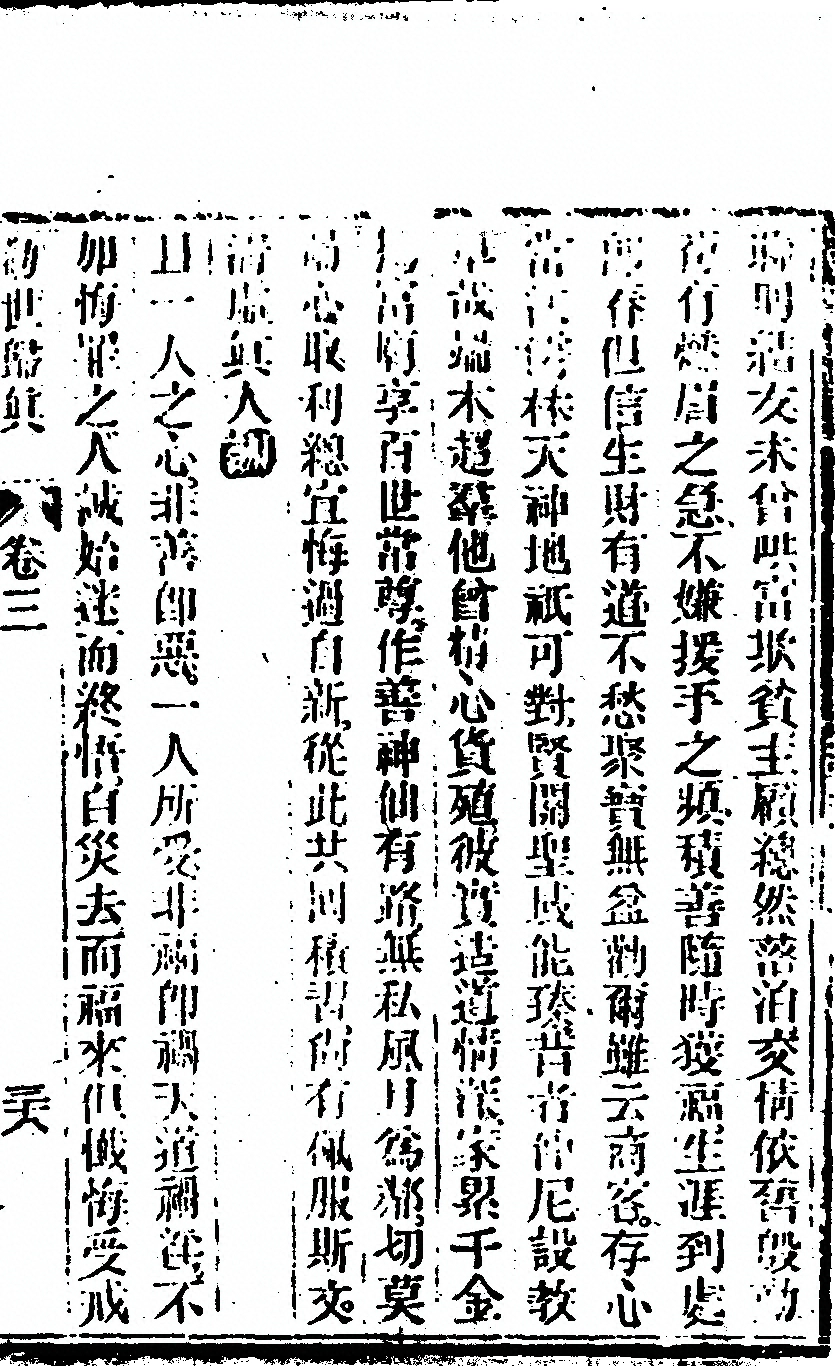 聰明結友未曾哄富欺貧主顧穩然落泊交情依舊毀動
有燃眉之急不嫌援手之頻積善隨時獲福生涯到處
春但信生財有道不愁聚寶無盆勸爾雖云商客存心
當江湖林天神地祇可對賢關聖域能臻昔者仲尼設教
卓哉端木超羣他曾精心貨殖彼實造道情深家累千金
為富廟享百世常尊作善神仙有路無私風月為鄰切莫
喪心取利總宜悔過自新從此共回積習尚有佩服斯文
清虛真人訓
且一人之心非善卽惡一人所受非福卽禍天道禍淫不
加悔罪之人誠始迷而終悟自災去而福來但懺悔受戒
勸世歸真 卷三 三六